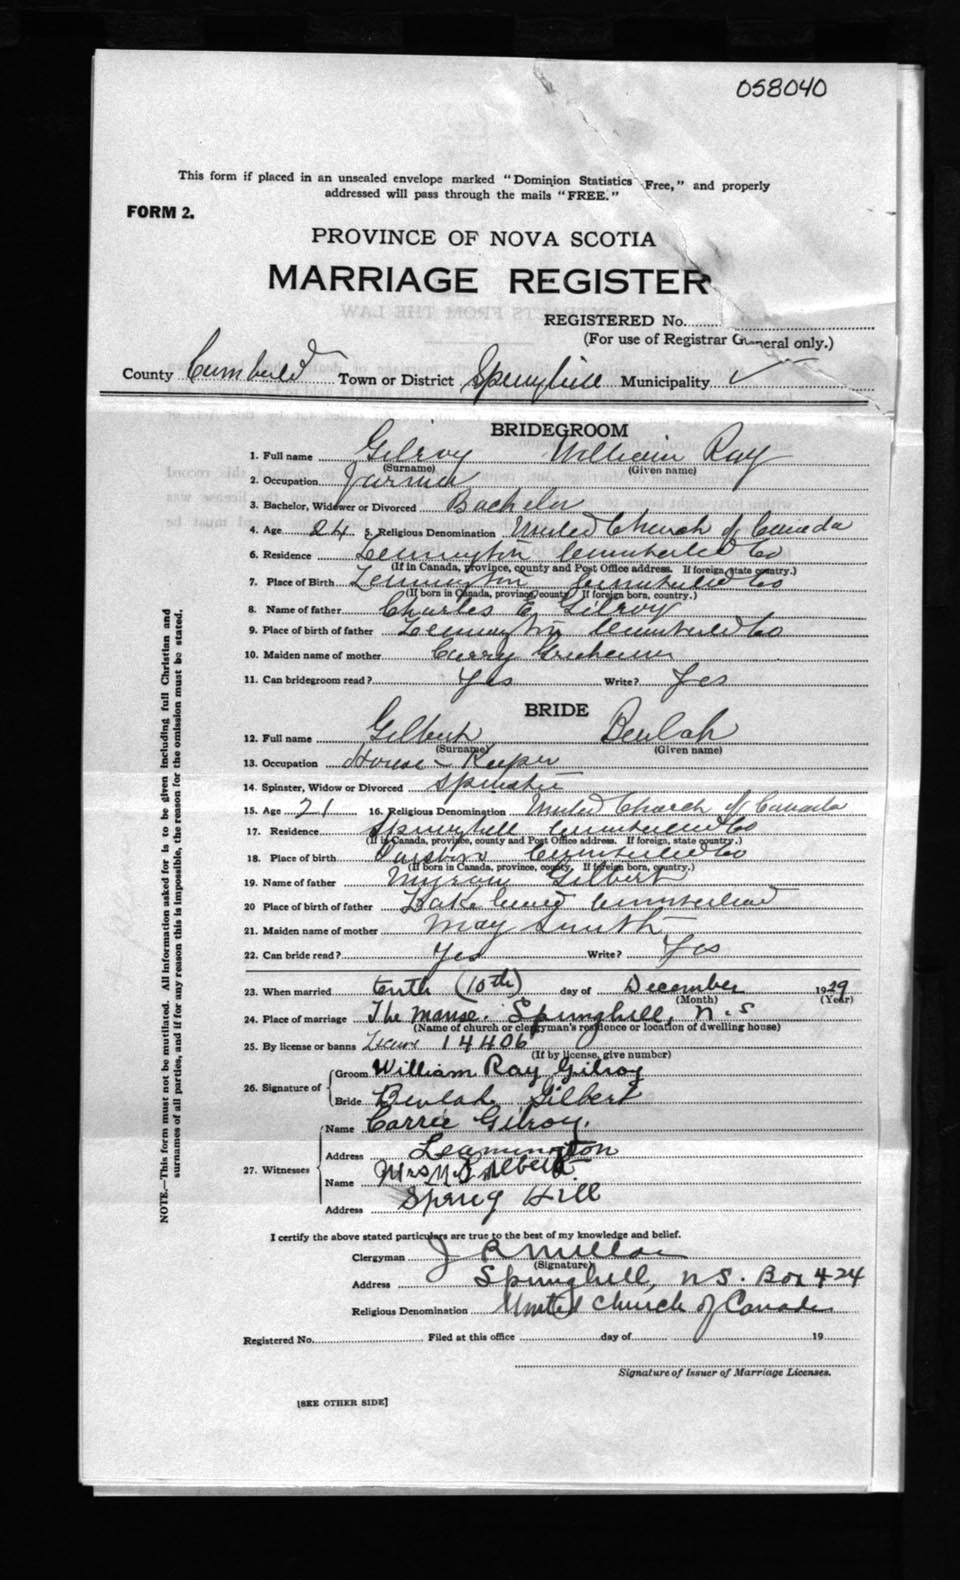 058040
This form if placed in an unsealed envelope marked "Dominion Statistics Free," and properly
addressed will pass through the mails "FREE."
FORM 2.
PROVINCE OF NOVA SCOTIA
MARRIAGE REGISTER
REGISTERED No.
(For use of Registrar General only.)
County Cumberld Town or District Springhill Municipality ✓
BRIDEGROOM
1. Full name Gilroy William Ray
(Surname) (Given name)
2. Occupation Farmer
3. Bachelor, Widower or Divorced Bachelor
4. Age 24 5. Religious Denomination United Church of Canada
6. Residence Leamington Cumberled Co
(If in Canada, province, county and Post Office address. If foreign, state country.)
7. Place of Birth Leamington Cumberled Co
(If born in Canada, province, county. If foreign born, country.)
8. Name of father Charles E Gilroy
9. Place of birth of father Leamington Cumberled Co
10. Maiden name of mother
11. Can bridegroom read? Yes Write? Yes
BRIDE
12. Full name Gilbert Beulah
(Surname) (Given name)
13. Occupation House-Keeper
14. Spinster, Widow or Divorced Spinster
15. Age 21 16. Religious Denomination United Church of Canada
17. Residence Springhill Cumberled Co
(If in Canada, province, county and Post Office address. If foreign, state country.)
18. Place of birth Cumberled Co
(If born in Canada, province, county. If foreign born, country.)
19. Name of father Myron Gilbert
20 Place of birth of father Cumberland
21. Maiden name of mother May Smith
22. Can bride read? Yes Write? Yes
23. When married tenth (10th) day of December 1929
(Month) (Year)
24. Place of marriage The manse. Springhill, N.S
(Name of church or clergyman's residence or location of dwelling house)
25. By license or banns License 14406
(If by license, give number)
26. Signature of
Groom William Ray Gilroy
Bride Beulah Gilbert
27. Witnesses
Name Carrie Gilroy.
Address Leamington
Name Mrs M Gilbert
Address Spring Hill
I certify the above stated particulars are true to the best of my knowledge and belief.
Clergyman J R Millar
(Signature)
Address Springhill, N.S. Box 424
Religious Denomination United Church of Canada
Registered No. Filed at this office day of 19
Signature of Issuer of Marriage Licenses.
[SEE OTHER SIDE]
NOTE.—This form must not be mutilated. All information asked for is to be given including full Christian and
surnames of all parties, and if for any reason this is impossible, the reason for the omission must be stated.